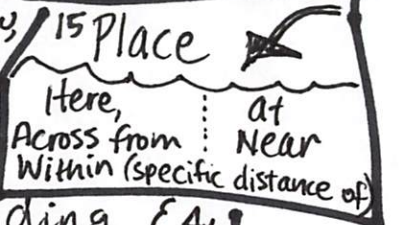 15 Place
Here, at
Across from Near
Within (specific distance of)
ding